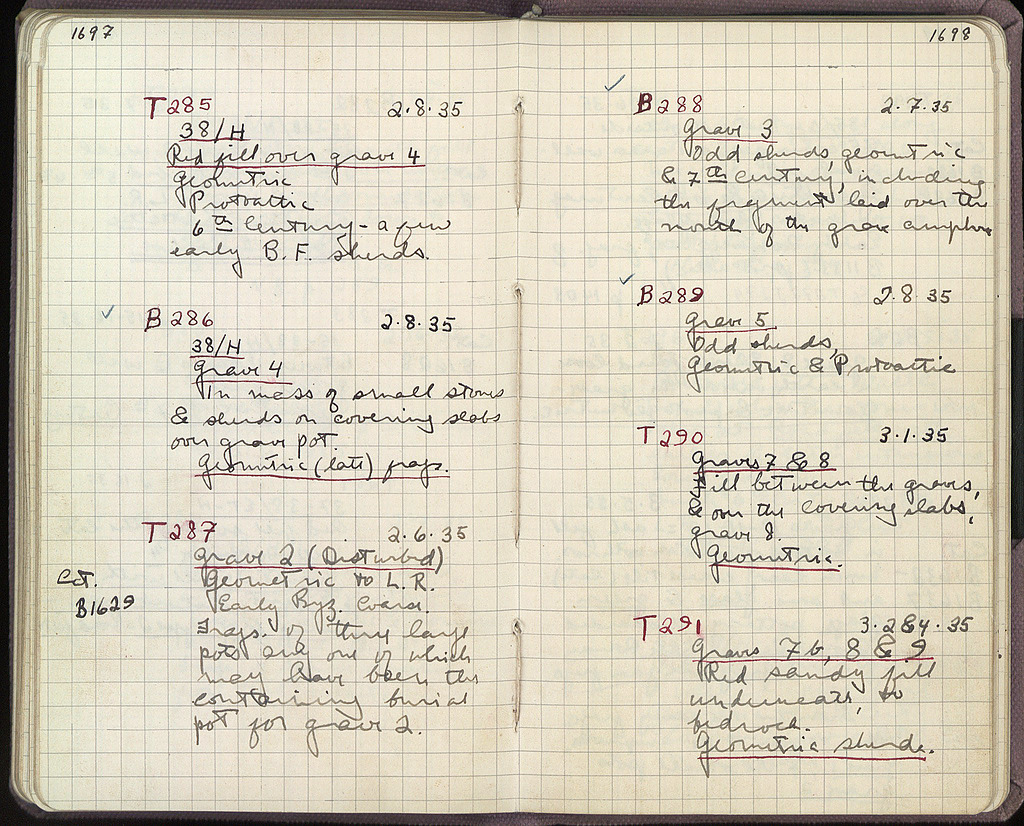 1697
T 285 2·8·35
38/H
Red fill over grave 4
Geometric
Protoattic
6th Century - a few
early B.F. sherds.
B 286 2·8·35
38/H
Grave 4
In mass of small stones
& sherds on covering slabs
over grave pot.
Geometric (late) frags.
T 287 2·6·35
Grave 2 (Disturbed)
Geometric to L.R.
Early Byz. Coarse.
Frags. of three large
pots any one of which
may have been the
containing burial
pot for grave 2.
Cat.
B1629
1698
B 288 2·7·35
Grave 3
Odd sherds, geometric
& 7th century, including
the fragment laid over the
mouth of the grave amphora
B 289 2·8·35
Grave 5
Odd sherds,
Geometric & Protoattic
T 290 3·1·35
Graves 7 & 8
Fill between the graves,
& over the covering slabs,
grave 8.
Geometric.
T 291 3·2&4·35
Graves 7b, 8 & 9
Red sandy fill
underneath, to
bedrock.
Geometric sherds.